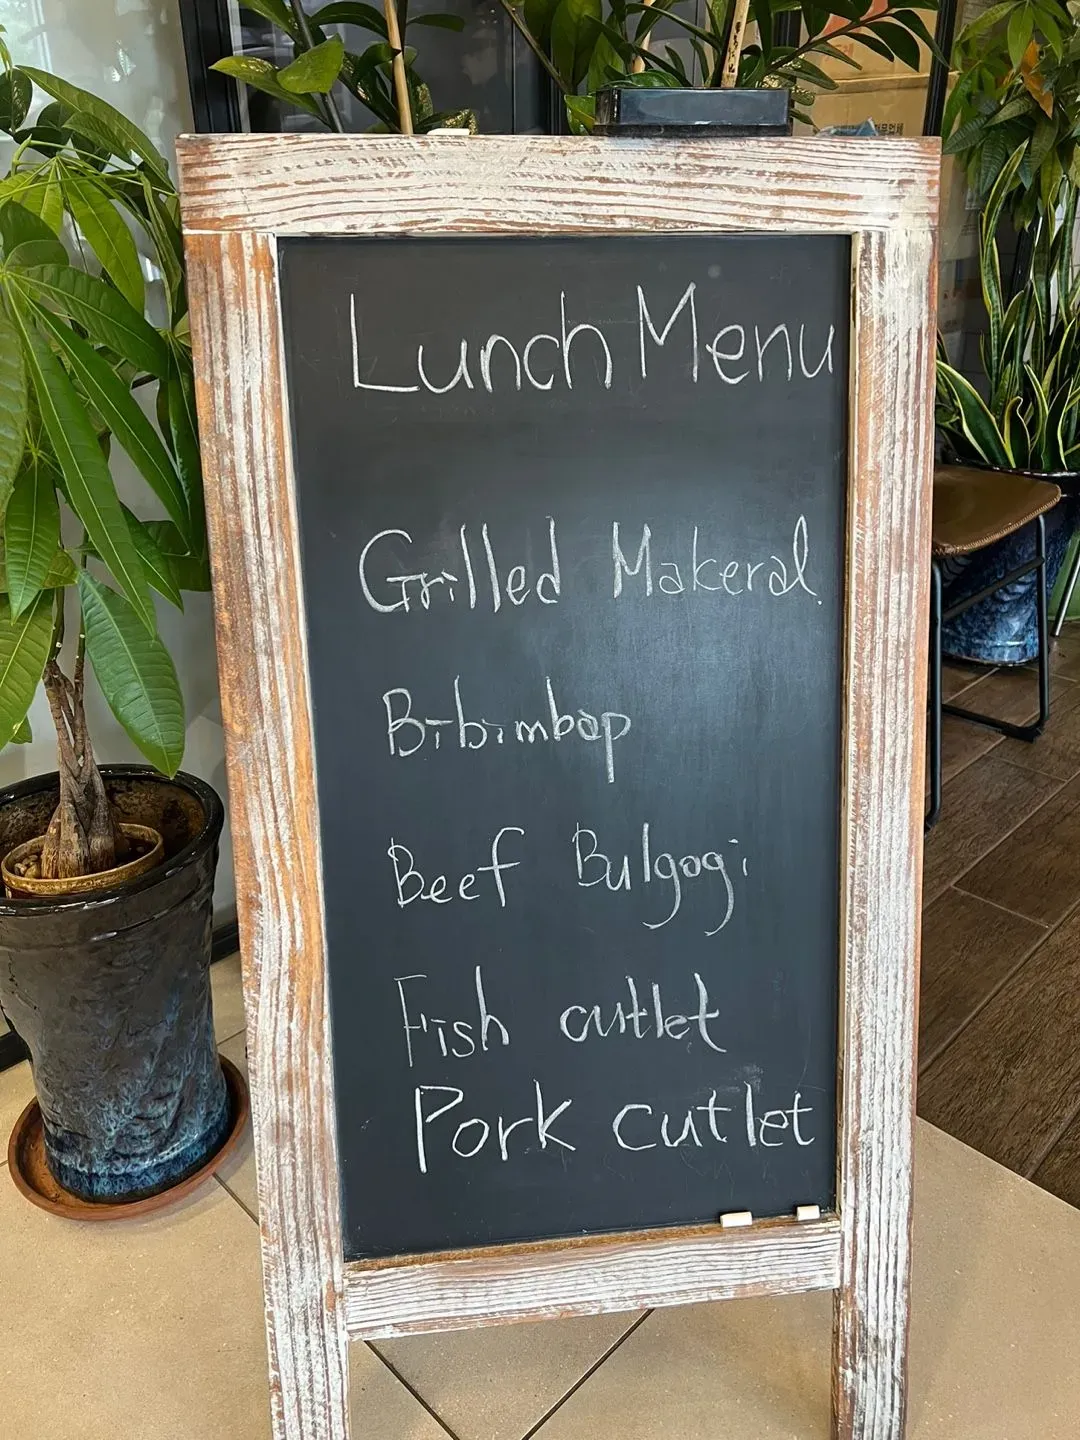 Lunch Menu
Grilled Makeral.
Bibimbap
Beef Bulgogi
Fish cutlet
Pork cutlet